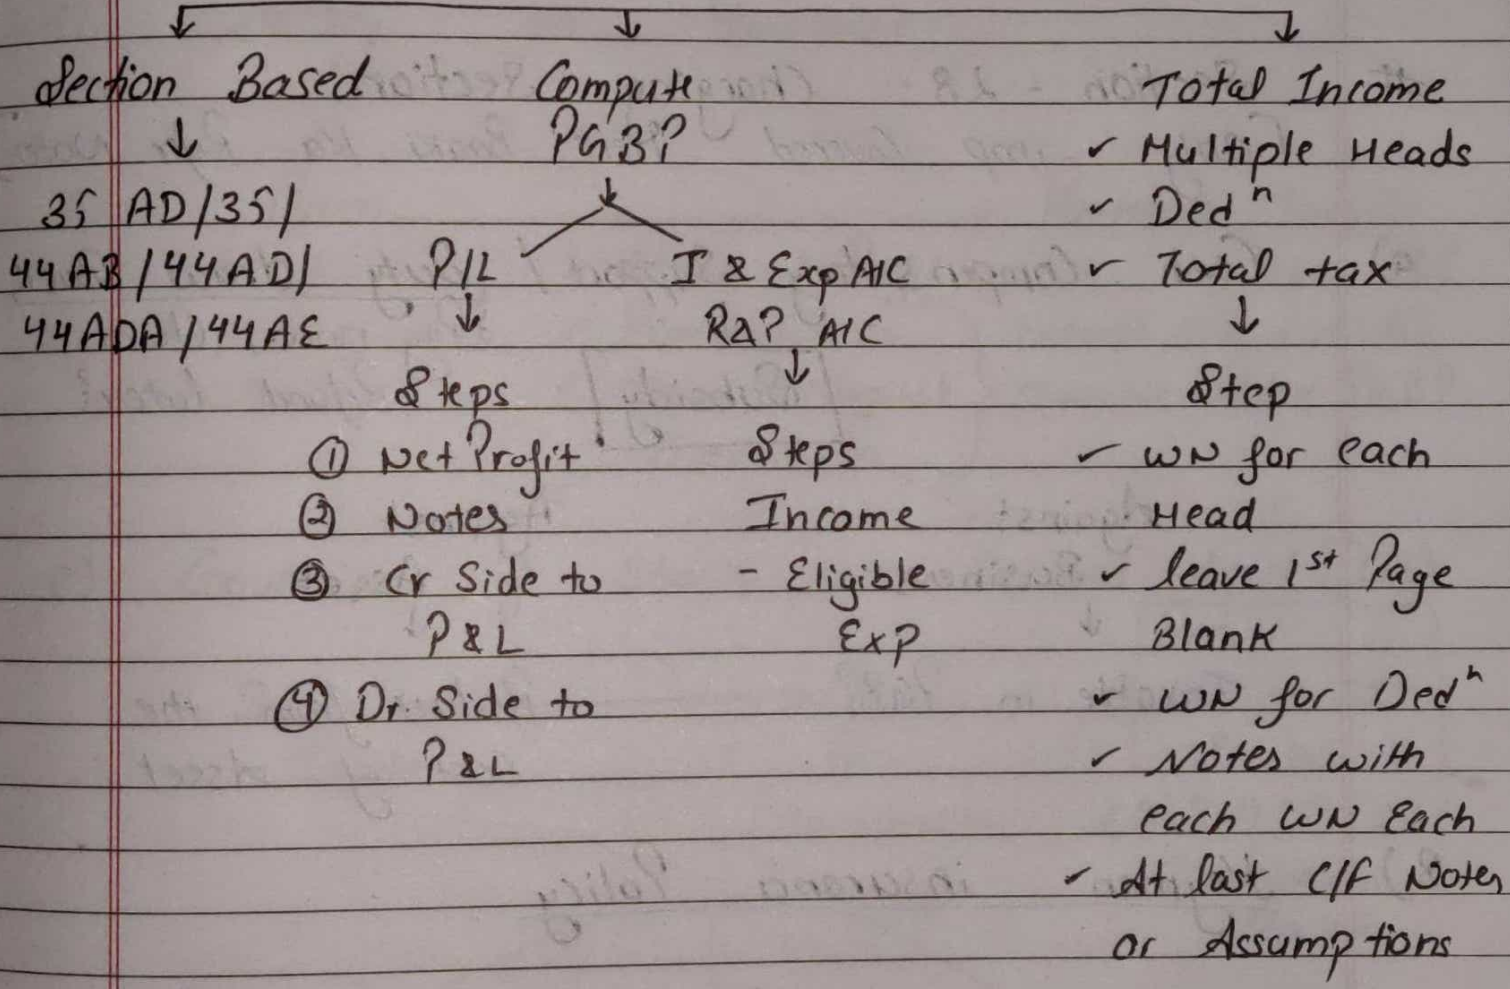 Section Based
35 AD/35/
44AB/44AD/
44ADA/44AE
Compute
PGBP
P/L
Steps
① Net Profit
② Notes
③ Cr Side to
P&L
④ Dr. Side to
P&L
I & Exp A/C
R&P A/C
Steps
Income
- Eligible
Exp
Total Income
✓ Multiple Heads
✓ Dedⁿ
✓ Total tax
Step
✓ WN for each
Head
✓ leave 1st Page
Blank
✓ WN for Dedⁿ
✓ Notes with
each WN Each
✓ At last C/F Notes
or Assumptions